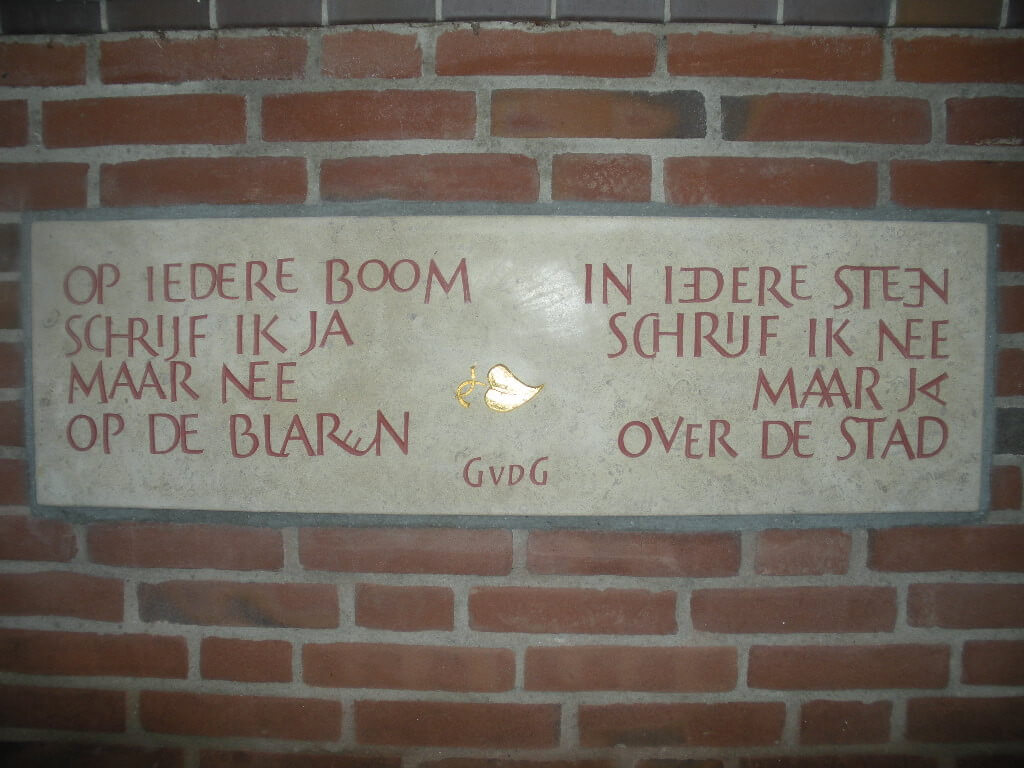 OP IEDERE BOOM
SCHRIJF IK JA
MAAR NEE
OP DE BLAREN
IN IEDERE STEEN
SCHRIJF IK NEE
MAAR JA
OVER DE STAD
GVDG